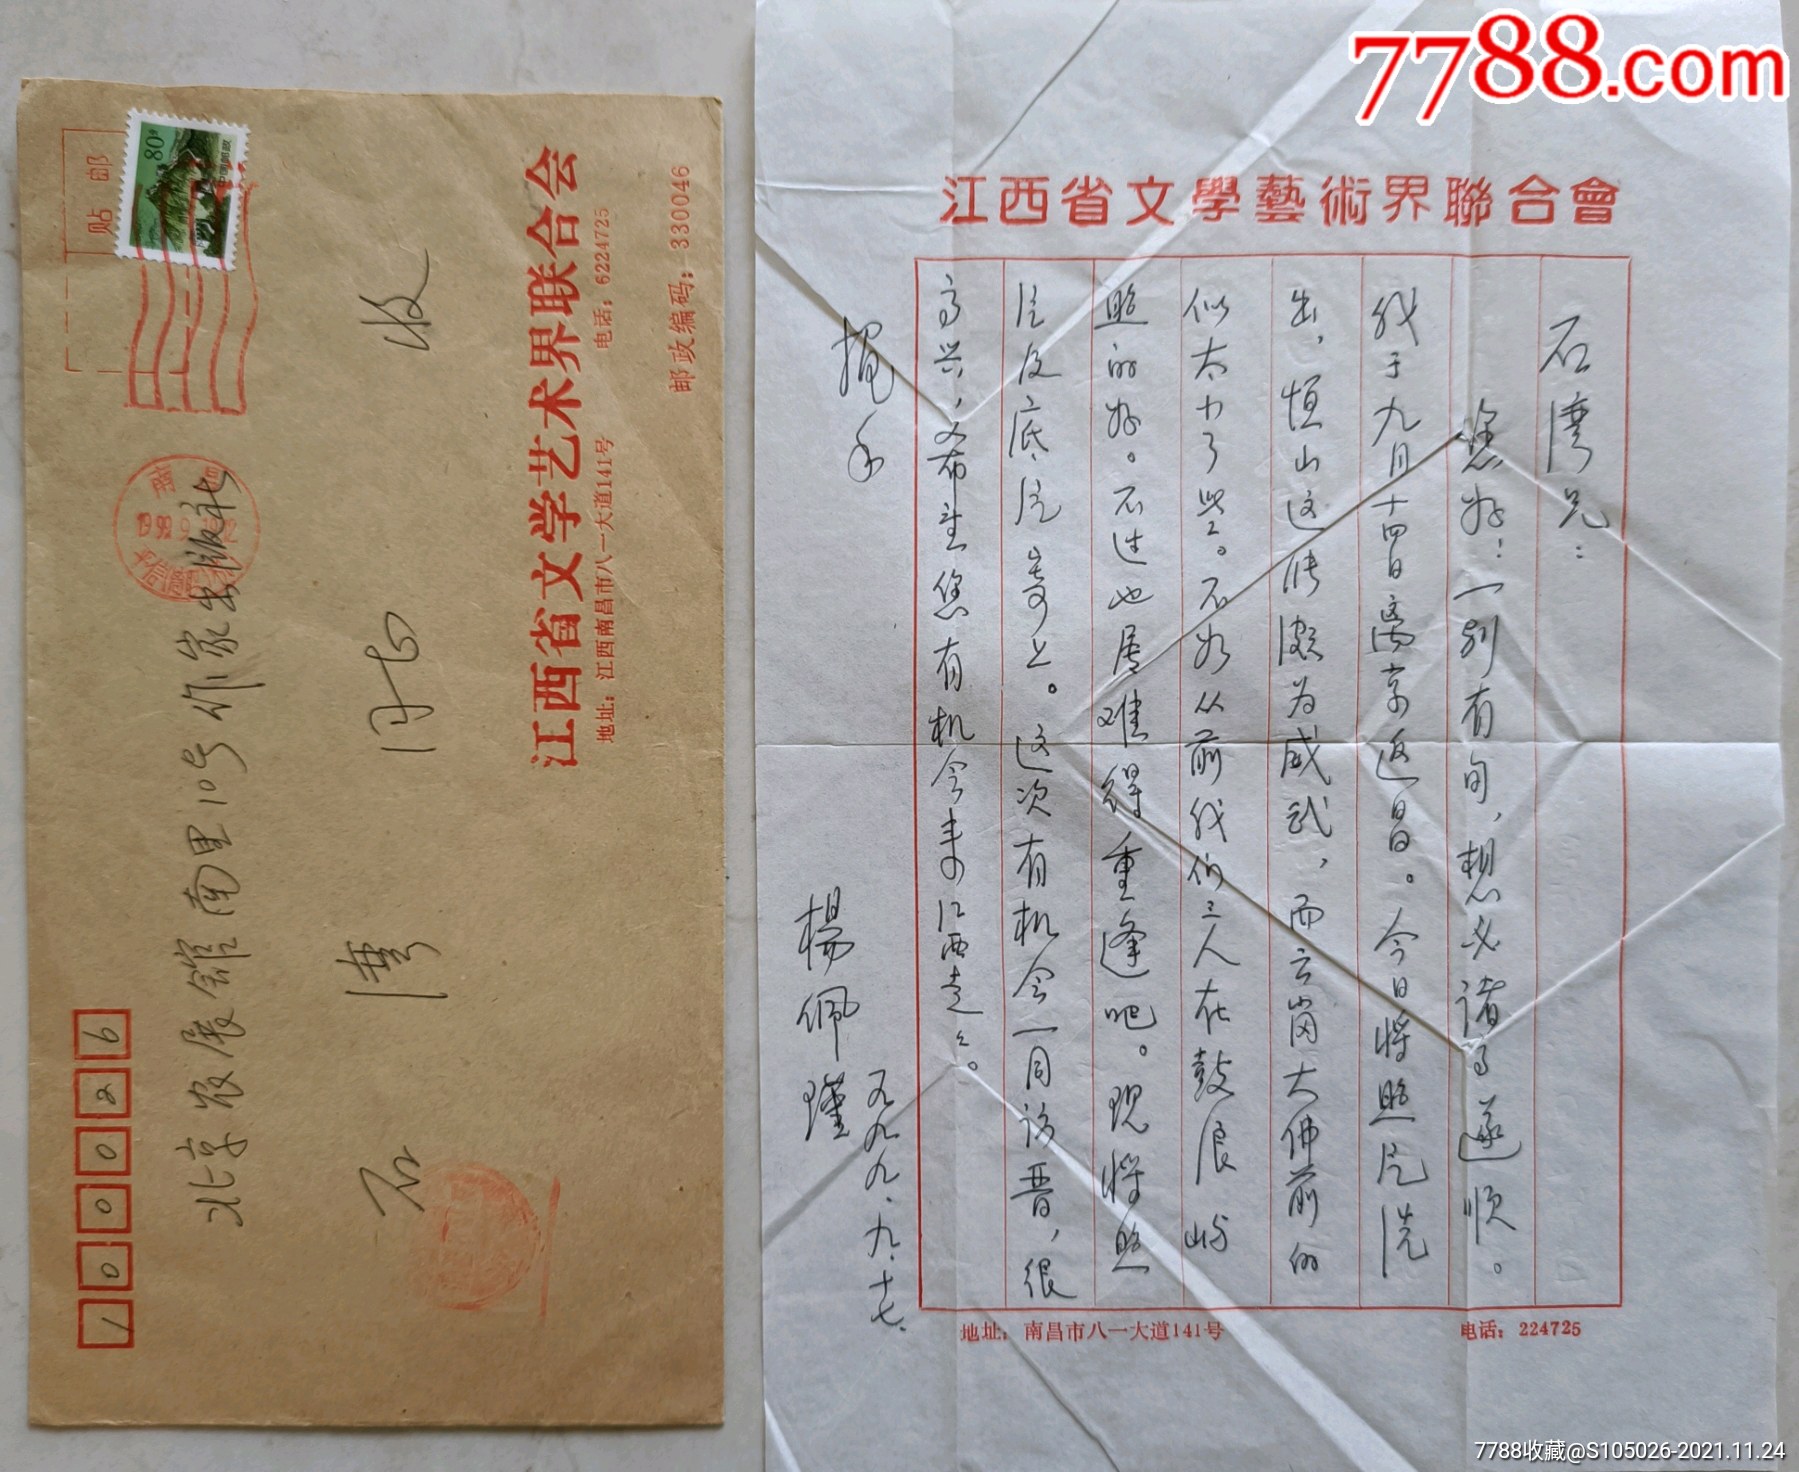 7788.com
江西省文學藝術界聯合會
石湾兄：
您好！一别有旬，想必诸事遂顺。
我于九月十四日离京返昌。今日将照片洗
出，恒山这张颇为威武，而云岗大佛前的
似太力了些。不如从前我们三人在鼓浪屿
照的好。不过也属难得重逢吧。现将照
片及底片寄上。这次有机会一同访晋，很
高兴，希望您有机会来江西走走。
握手
楊佩瑾
九九九.九.十七.
地址：南昌市八一大道141号
电话：224725
贴 邮
80
中国邮政
南昌
100026
北京农展馆南里10号作家出版社
石湾 同志 收
江西省文学艺术界联合会
地址：江西南昌市八一大道141号
电话：6224725
邮政编码：330046
7788收藏@S105026-2021.11.24